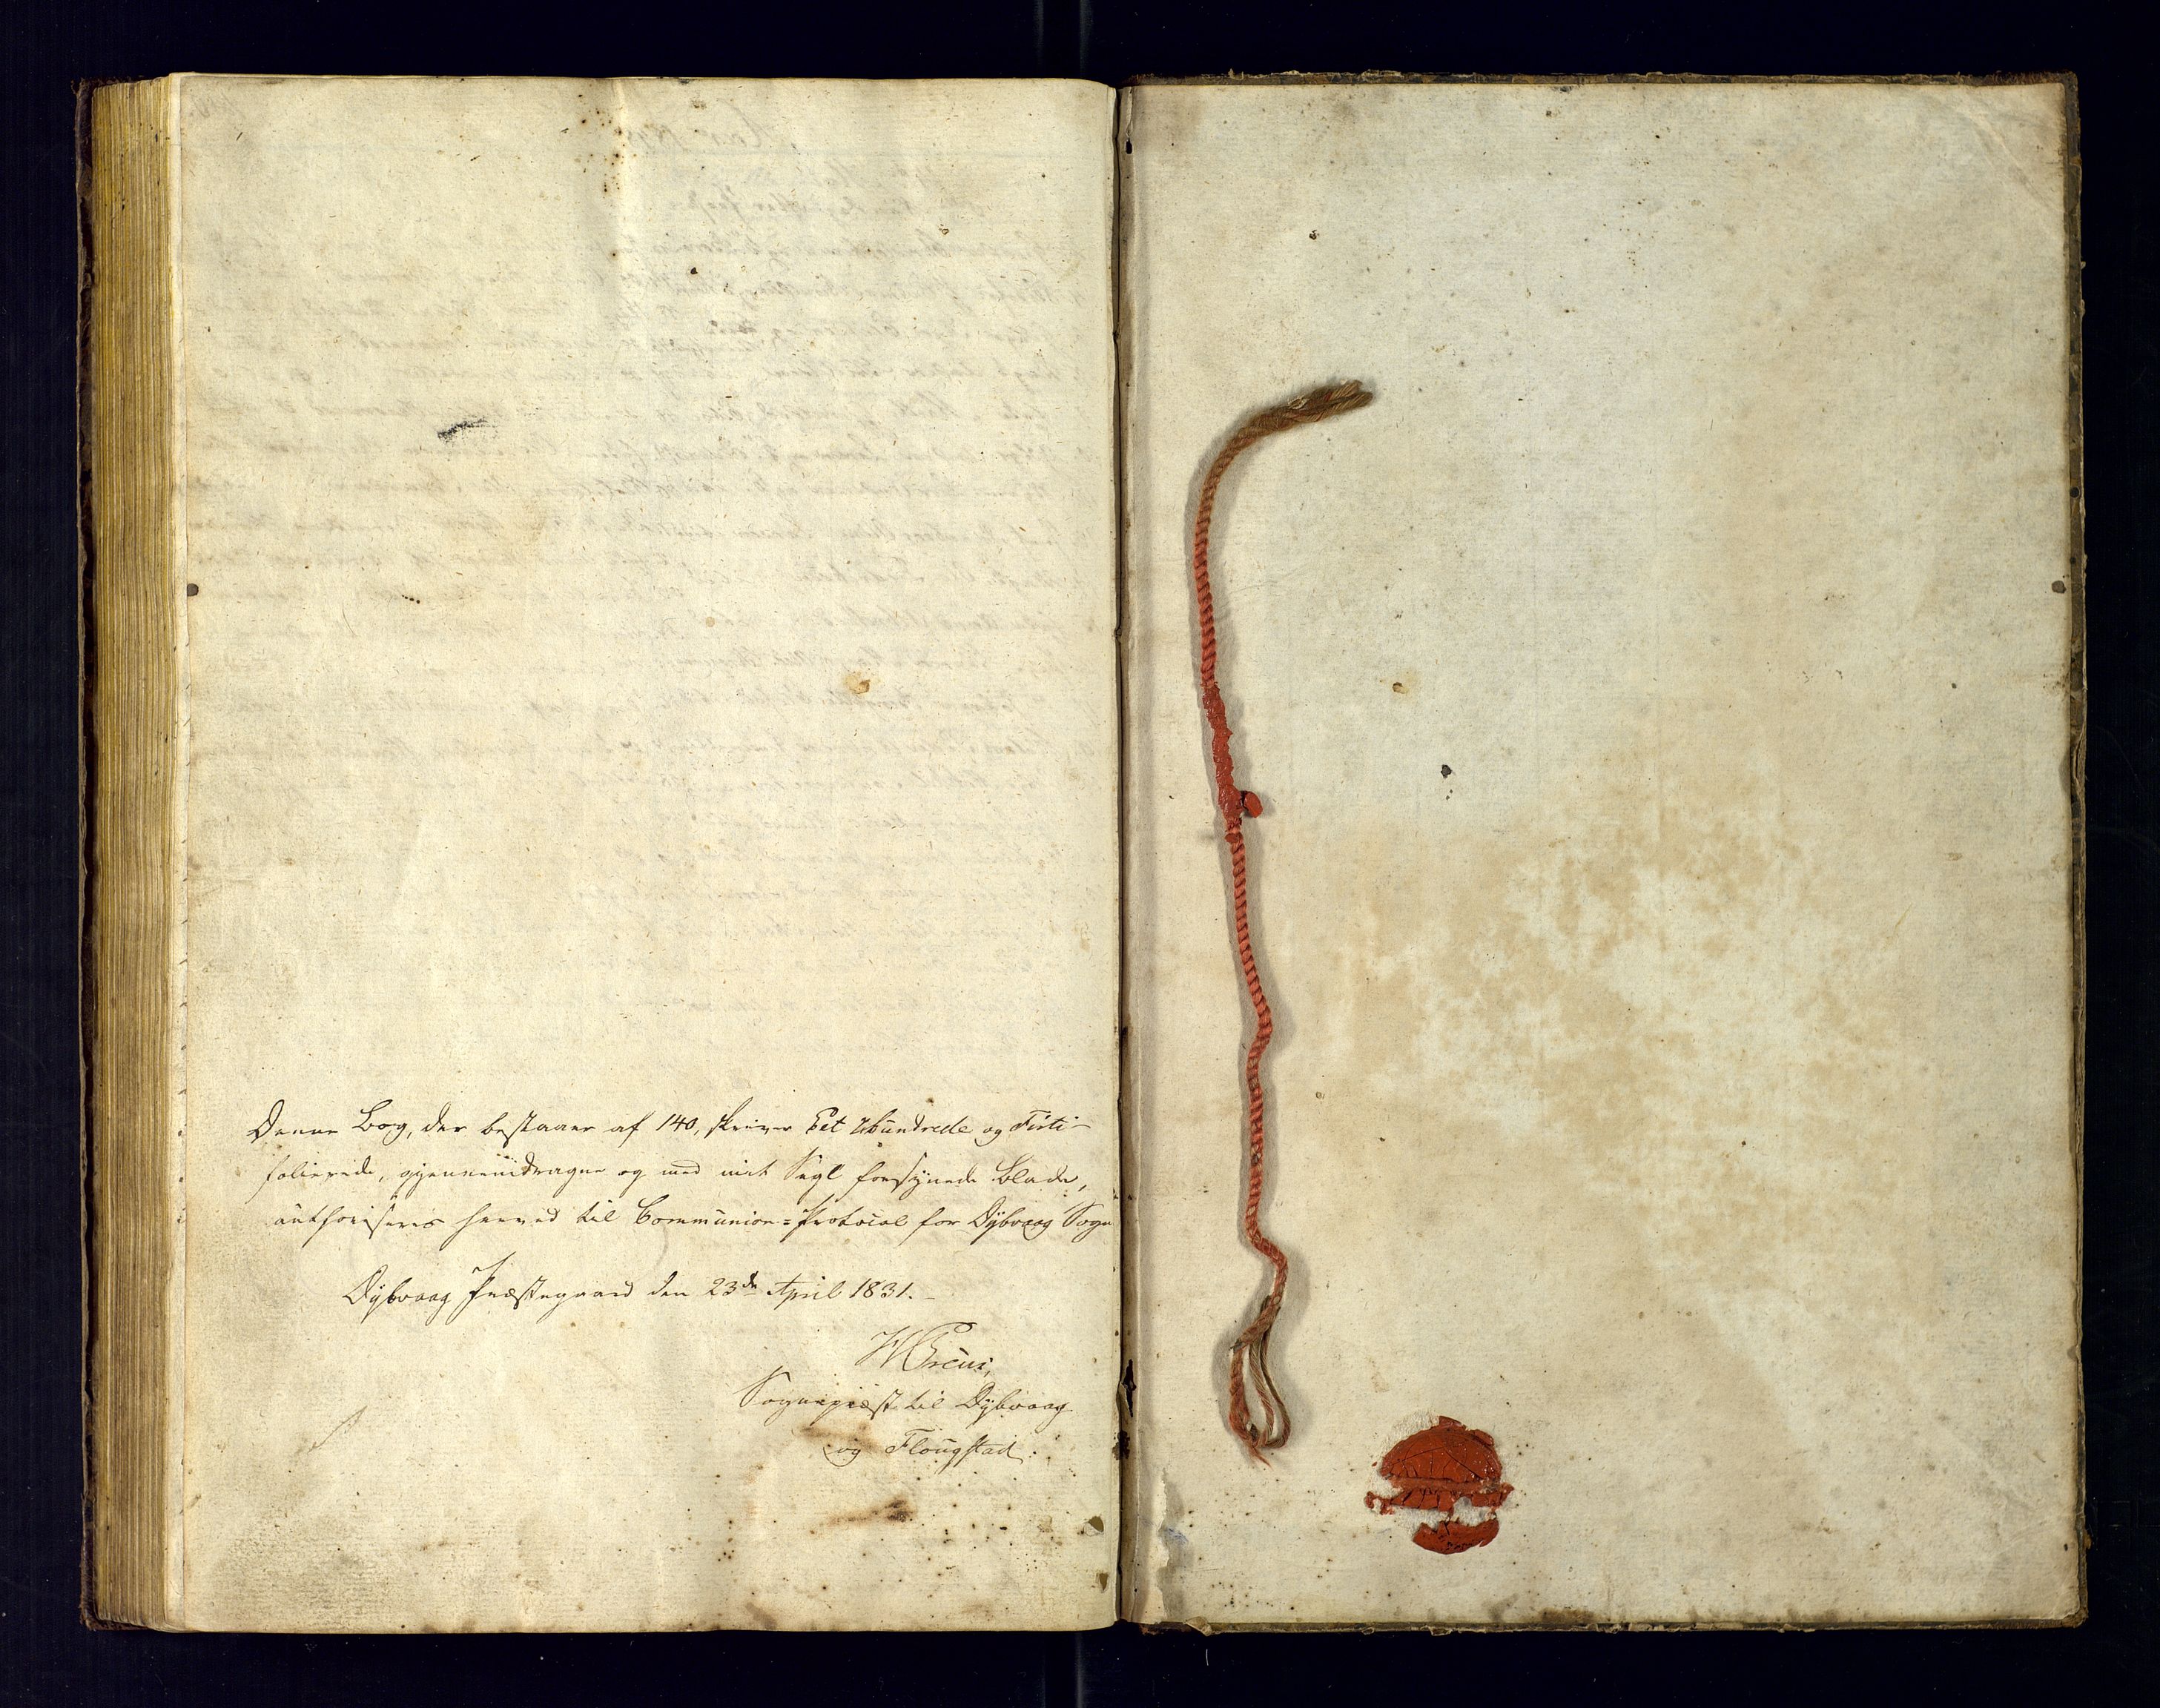 Denne Bog, der bestaaer af 140, skriver Eet Hundrede og Firti
folierede, gjennemdragne og med mit Segl forsynede Blade,
authoriseres herved til Communion-Protocol for Dybvaag Sogn
Dybvaag Præstegaard den 23de April 1831.
Sognepræst til Dybvaag
og Flougstad.